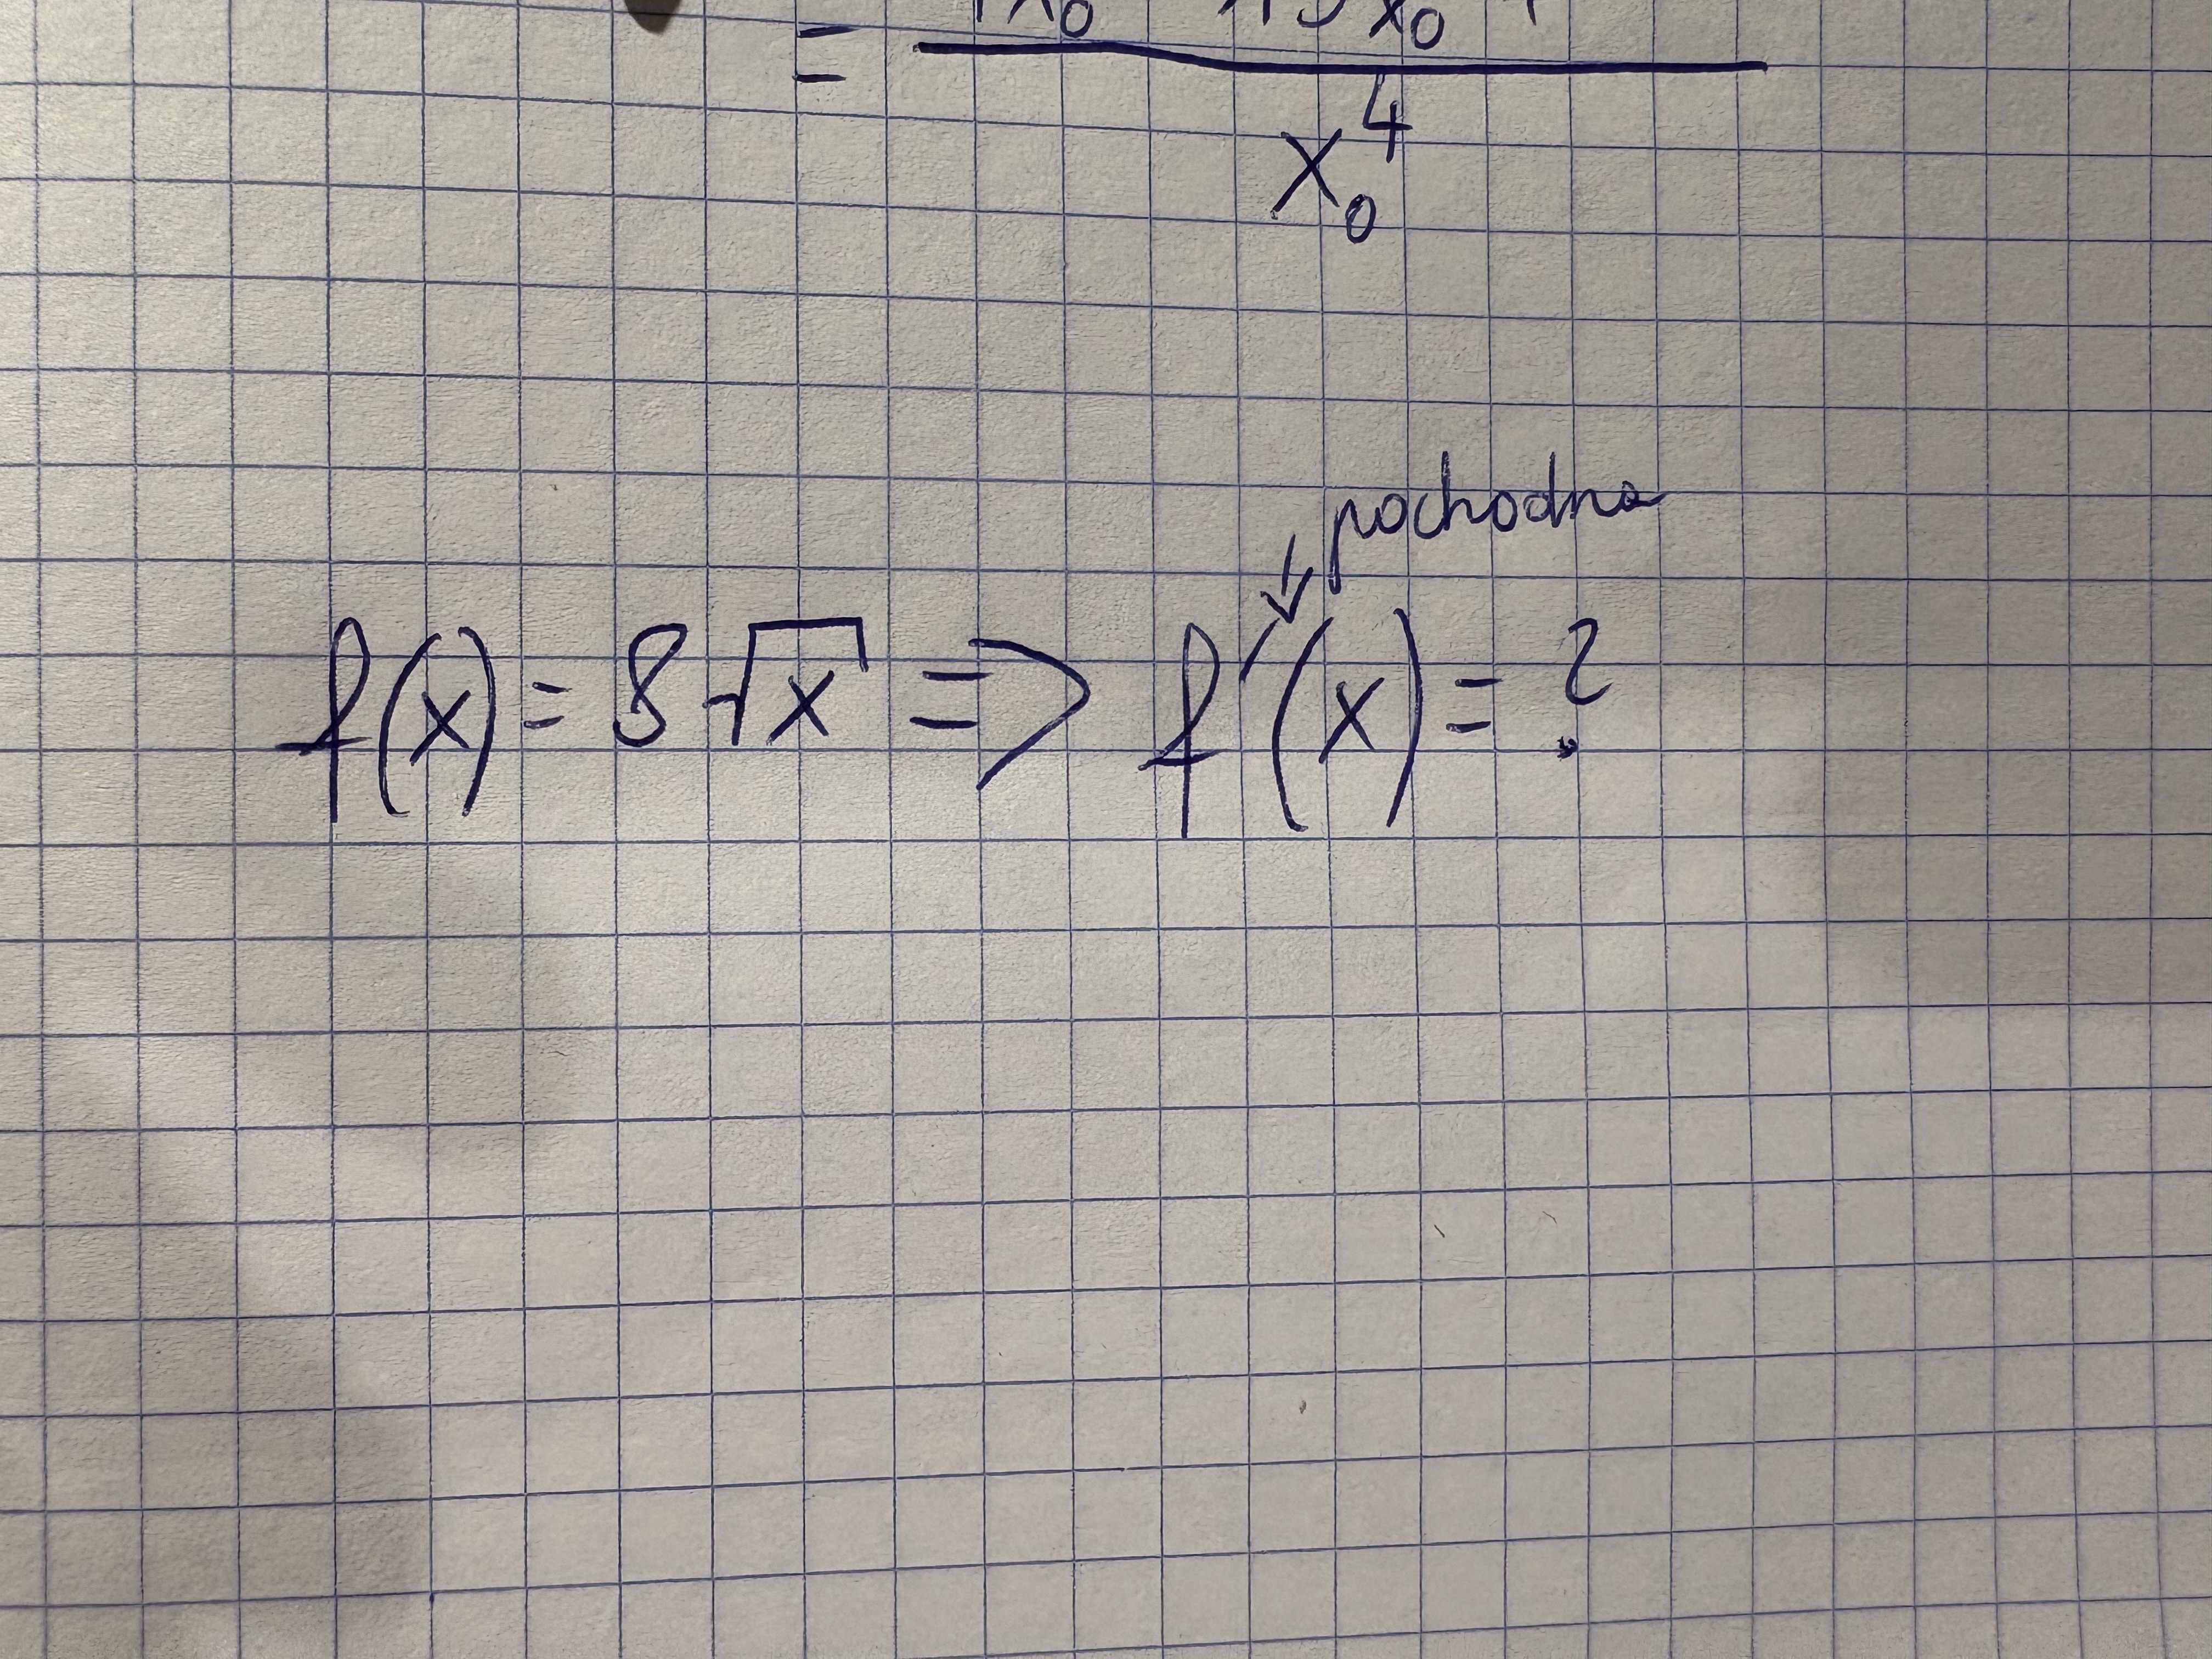 =
x₀⁴
pochodna
f(x) = 8√x => f'(x) = ?